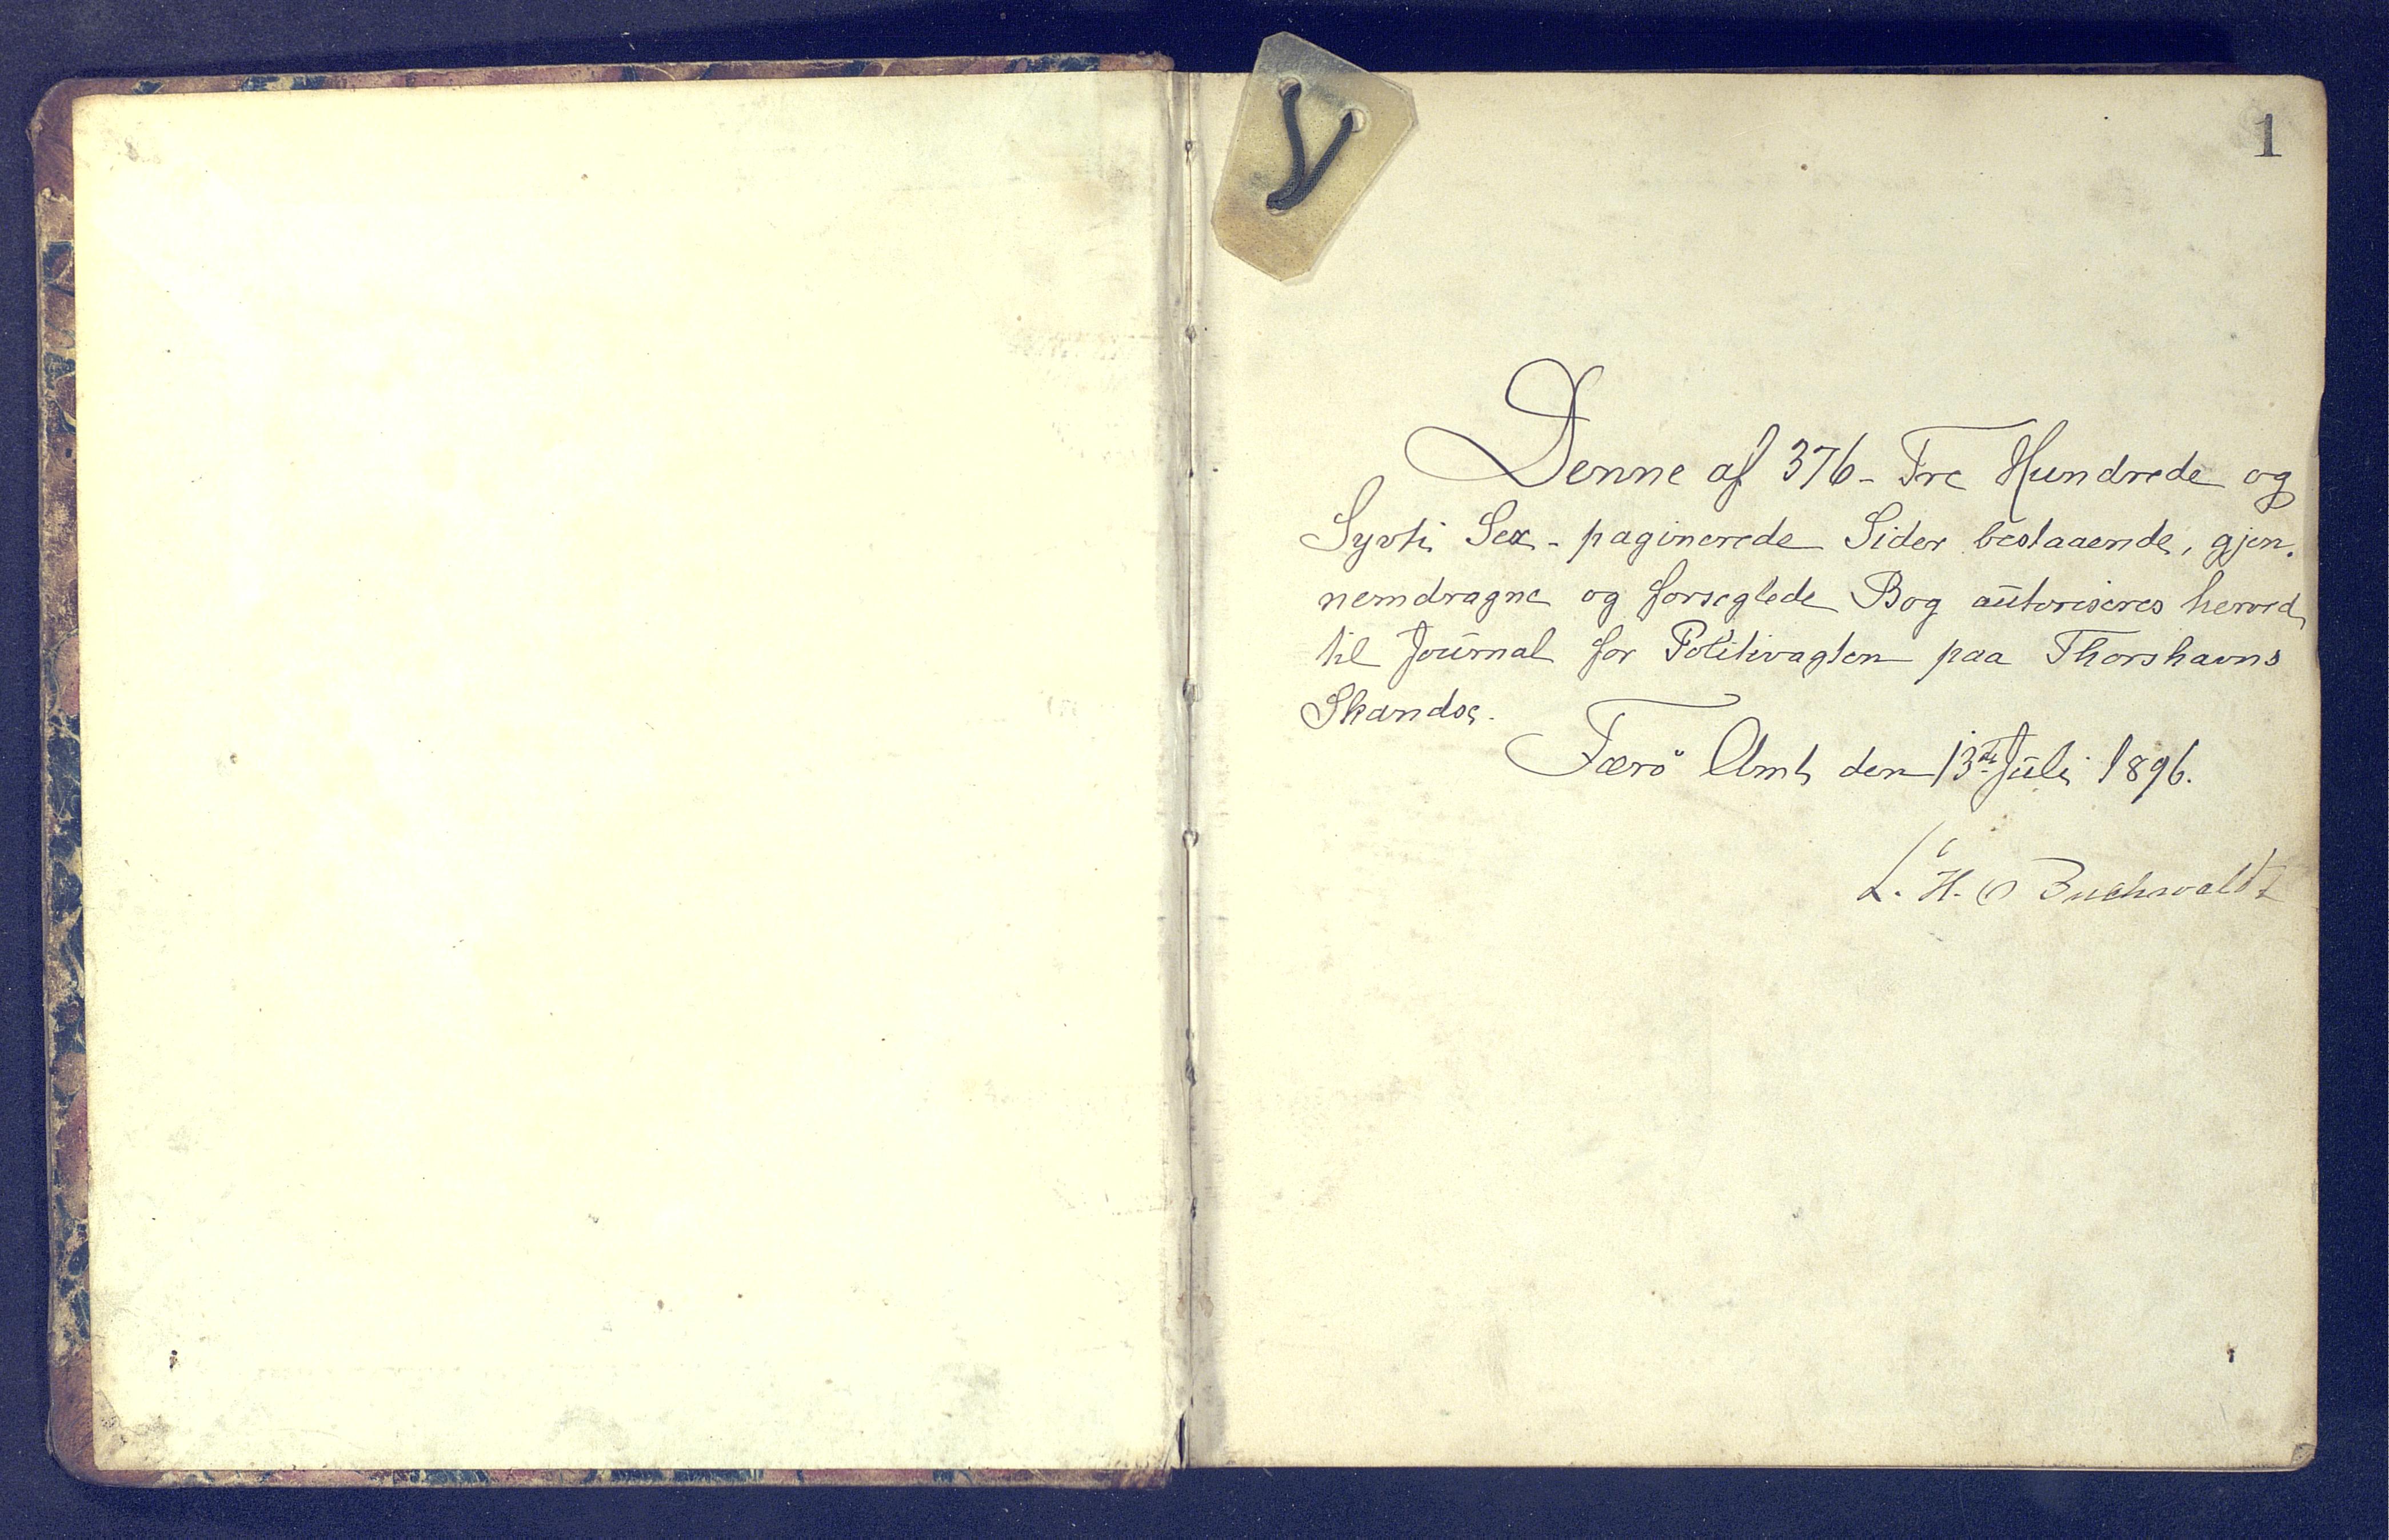 1
Denne af 376 - Tre Hundrede og
Syvti Sex - paginerede Sider bestaaende, gjen-
nemdragne og forseglede Bog autoriseres herved
til Journal for Politivagten paa Thorshavns
Skandse.
Færö Amt, den 13de Juli 1896.
L. H. Buchwaldt